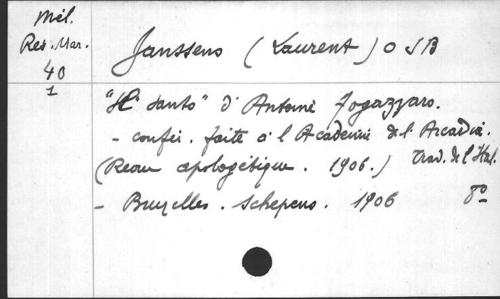 Mél.
Rel. Mar.
40
1
Janssens (Laurent) OSB
"Il Santo" d'Antoine Fogazzaro.
- confér. faite à l'Academie de l'Arcadie.
(Revue apologétique. 1906.) Trad. de l'Ital.
- Bruxelles. Schepens. 1906 8°